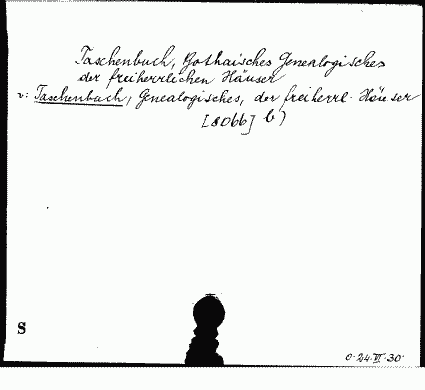 Taschenbuch, Gothaisches Genealogisches
der freiherrlichen Häuser
v: Taschenbuch, Genealogisches, der freiherrl. Häuser
[8066] b)
S
0.24.VI.30.